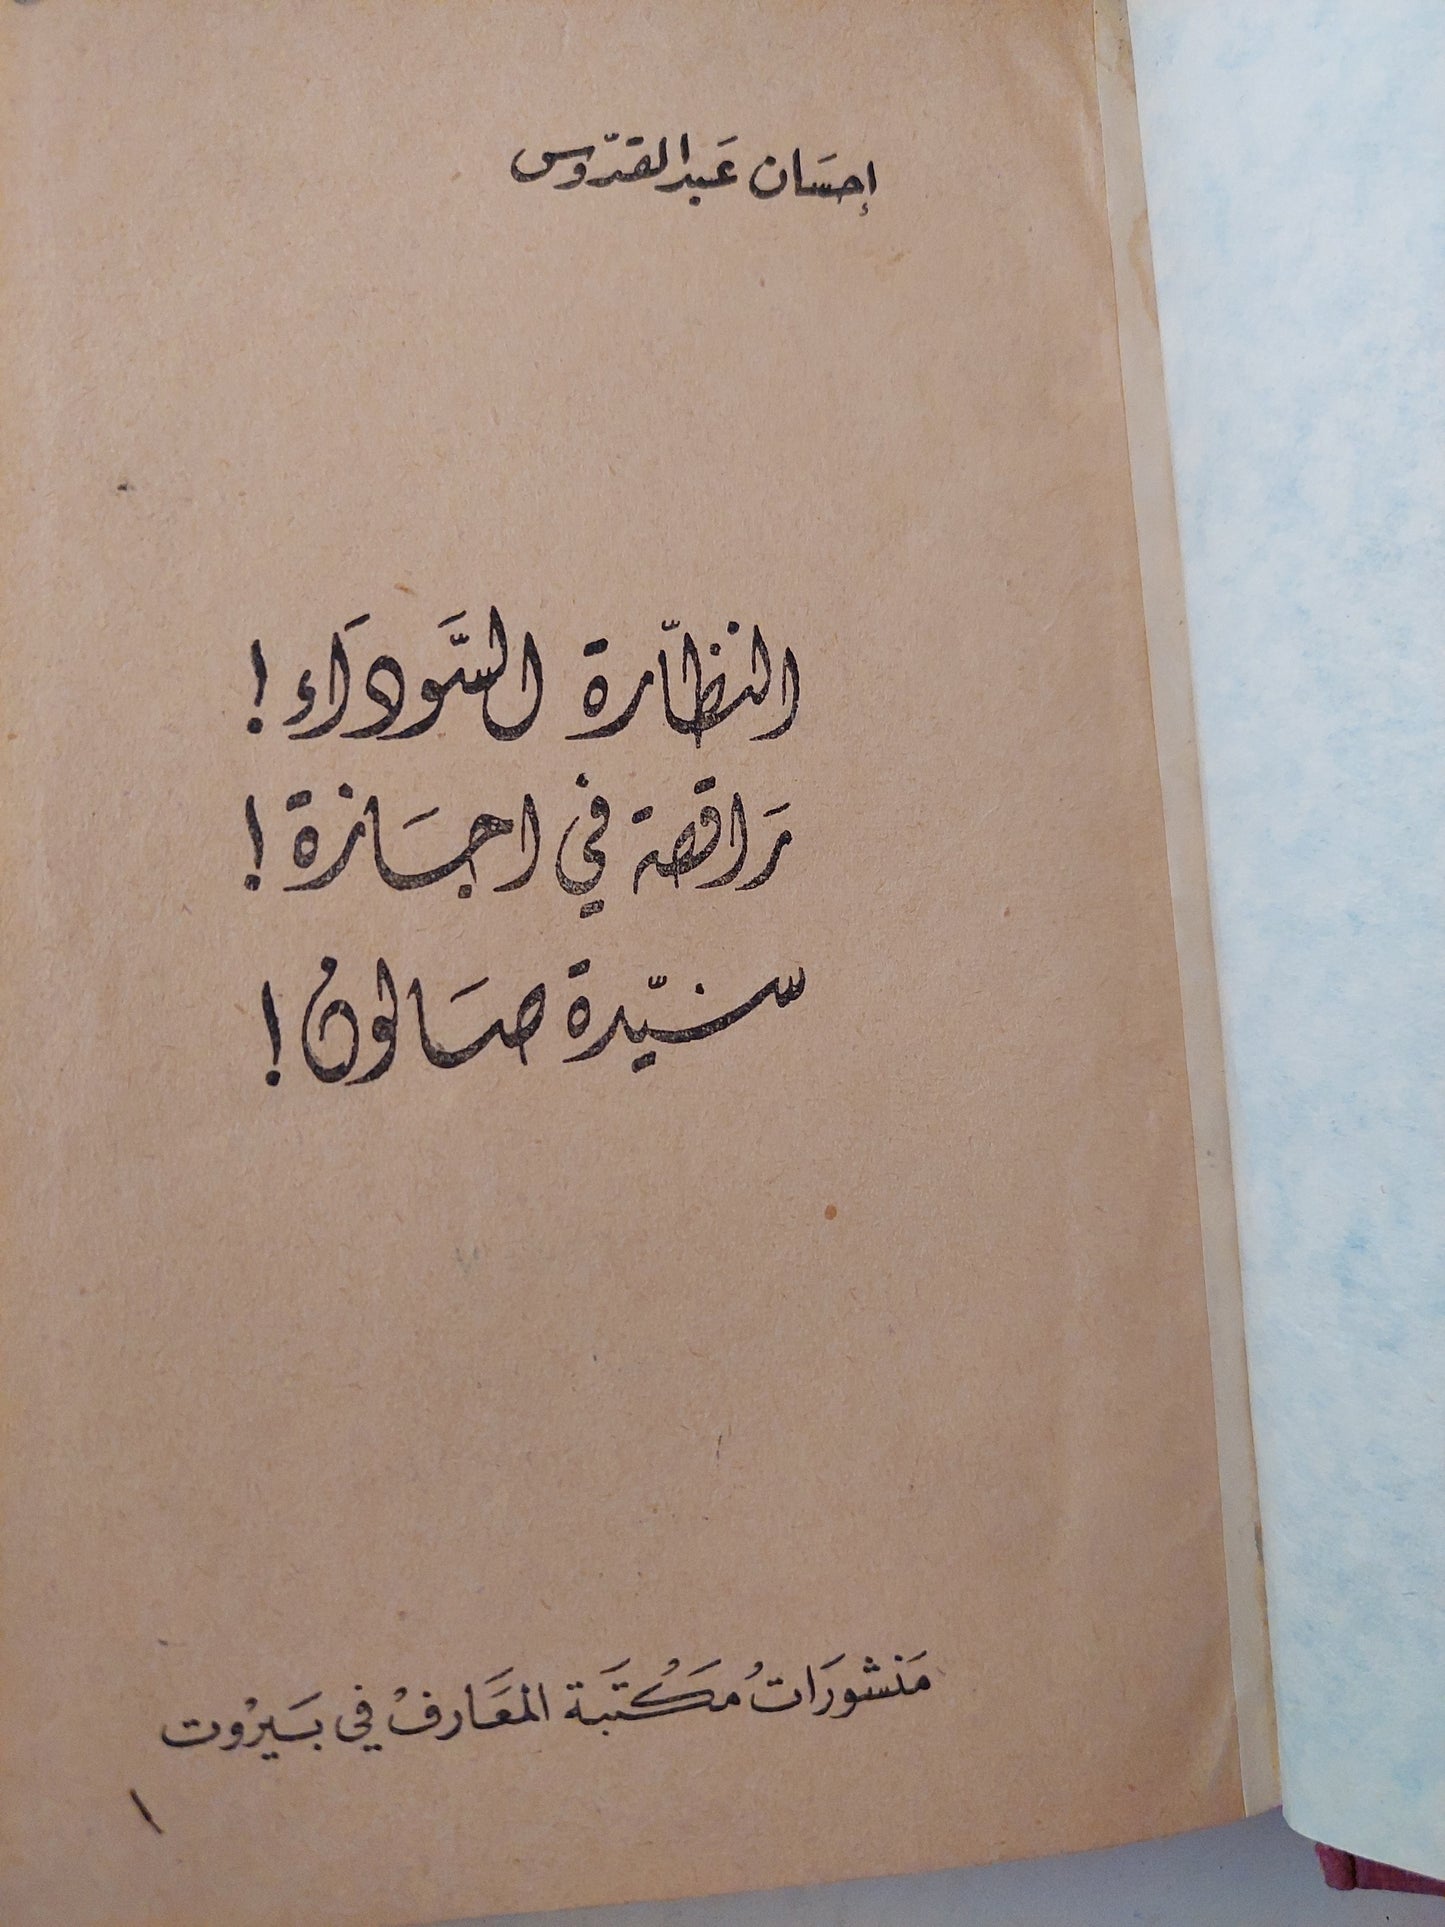 إحسَان عَبد القدّوس
النظّارة السَّودَاء !
رَاقصة في اجَازة !
سيّدة صَالون !
مَنشورَاتُ مَكْتَبَة المعَارفْ في بَيرْوت
١